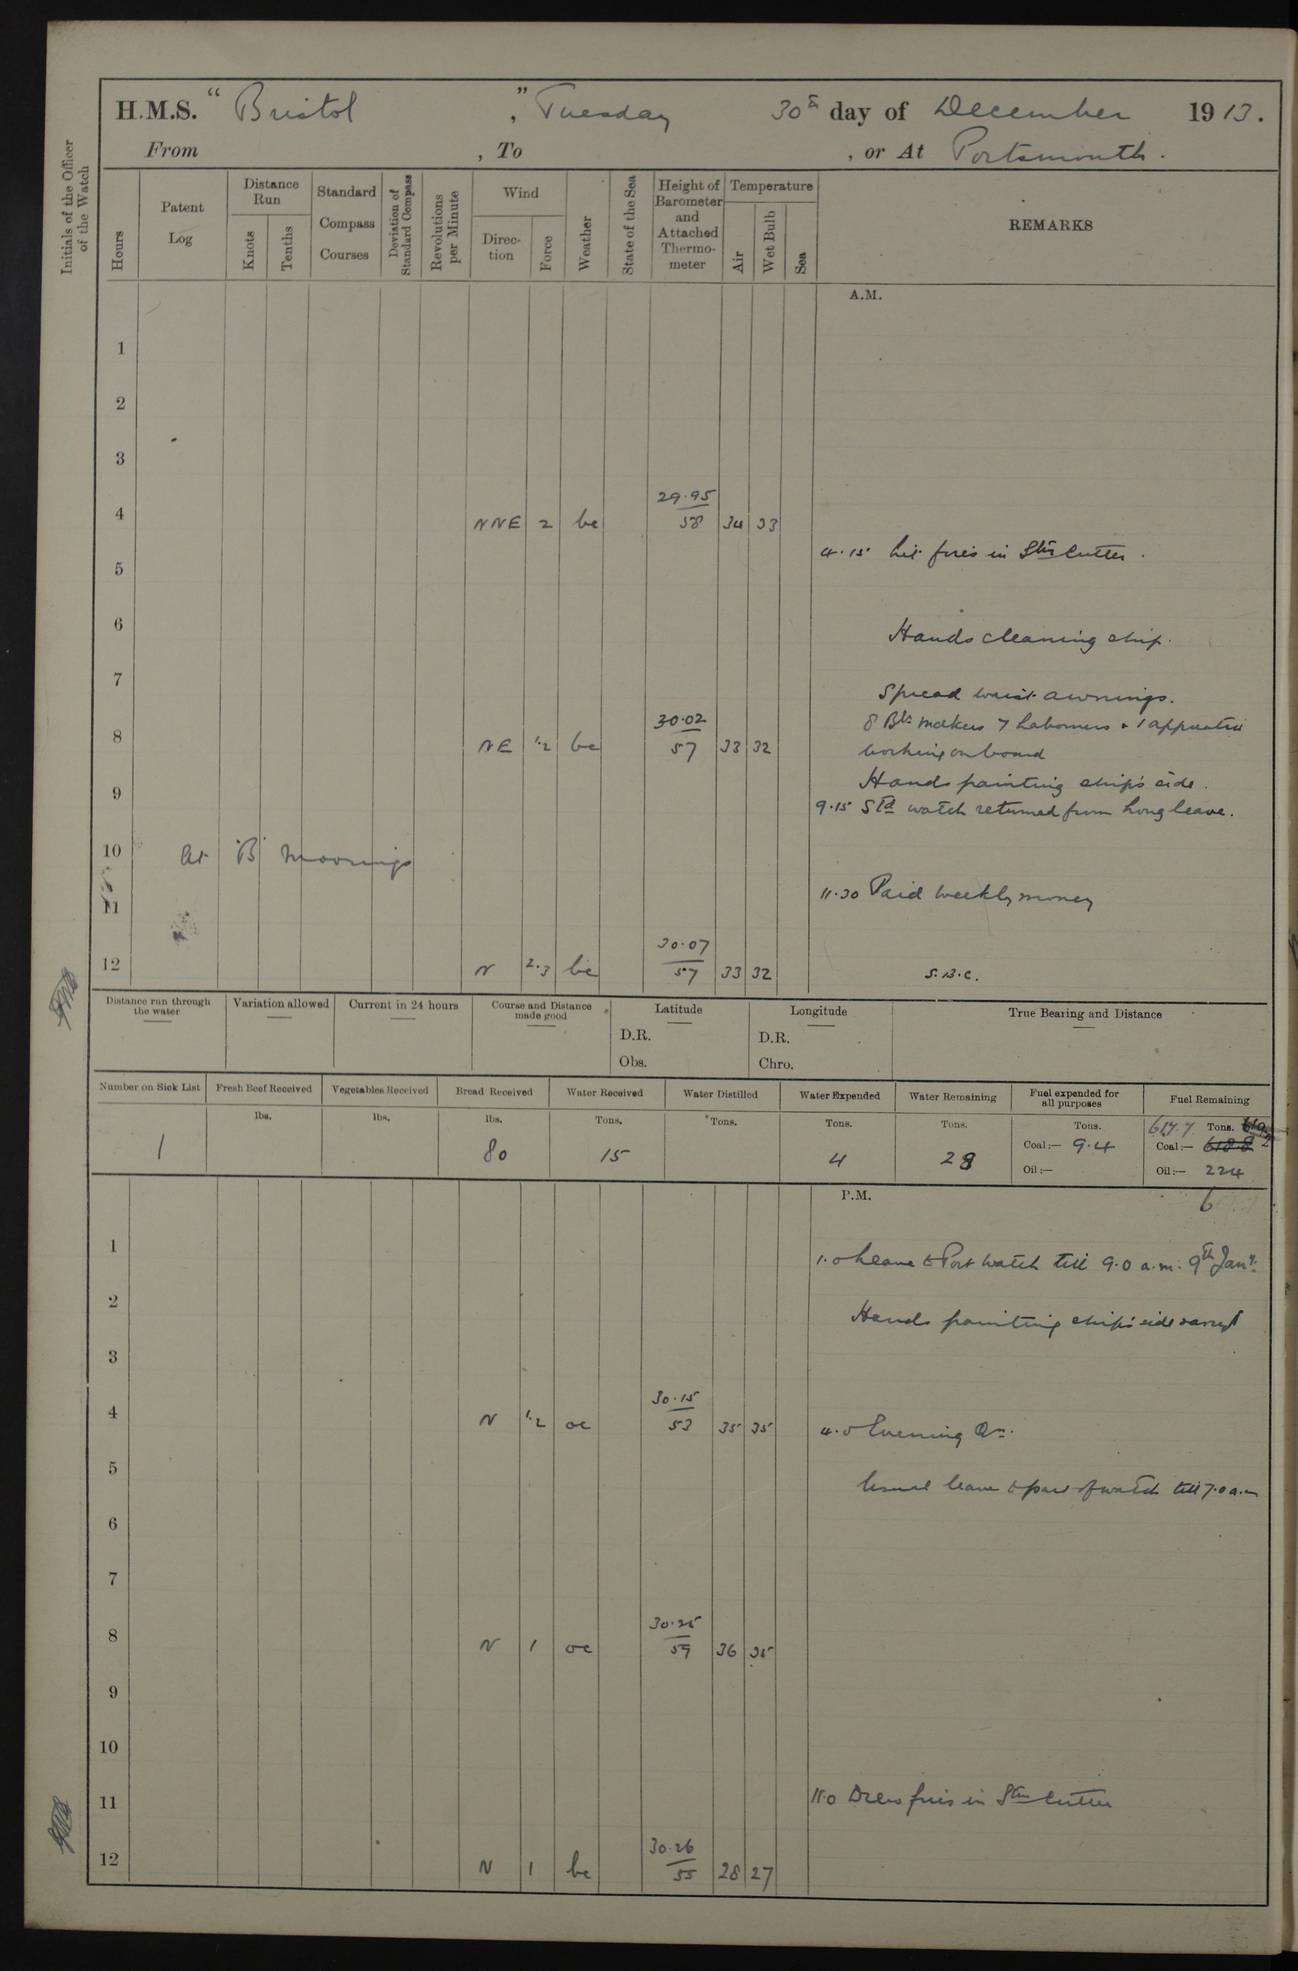 H.M.S. "Bristol", Tuesday 30th day of December 1913.
From , To , or At Portsmouth.
Initials of the Officer of the Watch
Hours
Patent Log
Distance Run
Knots
Tenths
Standard Compass Courses
Deviation of Standard Compass
Revolutions per Minute
Wind
Direction
Force
Weather
State of the Sea
Height of Barometer and Attached Thermometer
Temperature
Air
Wet Bulb
Sea
REMARKS
A.M.
1
2
3
29.95
4 NNE 2 bc 58 34 33
4.15 Lit fires in Stm Cutter.
5
6 Hands cleaning ship.
7
Spread waist awnings.
30.02
8 Blr makers 7 Labourers + 1 apprentice
8 NE 1.2 bc 57 33 32
working on board
Hands painting ship's side.
9
9.15 Std watch returned from long leave.
10 At 'B' Moorings
11.30 Paid weekly money
11
30.07
12 N 2.3 bc 57 33 32
S.B.C.
Distance run through the water
Variation allowed
Current in 24 hours
Course and Distance made good
Latitude
D.R.
Obs.
Longitude
D.R.
Chro.
True Bearing and Distance
Number on Sick List
1
Fresh Beef Received
lbs.
Vegetables Received
lbs.
Bread Received
lbs.
80
Water Received
Tons.
15
Water Distilled
Tons.
Water Expended
Tons.
4
Water Remaining
Tons.
28
Fuel expended for all purposes
Tons.
Coal:— 9.4
Oil:—
Fuel Remaining
617.7 Tons.
Coal:— 618.8
Oil:— 224
P.M.
1
1.0 Leave to Port watch till 9.0 a.m. 9th Jany.
2
Hands painting ship's side
3
30.15
4 N 1.2 oc 53 35 35
4.0 Evening Qrs.
5
Usual leave to part of watch till 7.0 a.m
6
7
30.25
8 N 1 oc 59 36 35
9
10
11 11.0 Drew fires in Stm Cutter
30.26
12 N 1 bc 55 28 27